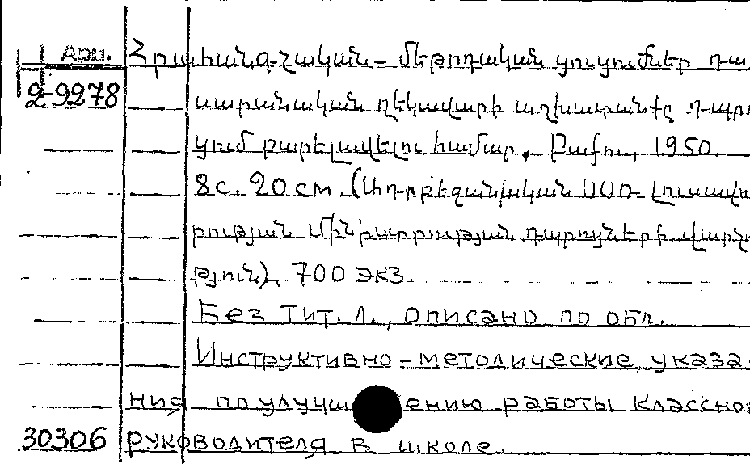 Арм. Հրահանգչական-մեթոդական ցուցումներ դա
2-9278 սարանական ղեկավարի աշխատանքը դպրո
ցում բարելավելու համար, Բաքու, 1950.
8с. 20 см. (Ադրբեջանական ՍՍՌ Լուսավո
րության Մինիստրության դպրոցների վարչու
թյուն). 700 экз.
Без тит. л., описано по обл.
Инструктивно-методические указа-
ния по улучшению работы классного
30306 руководителя в школе.